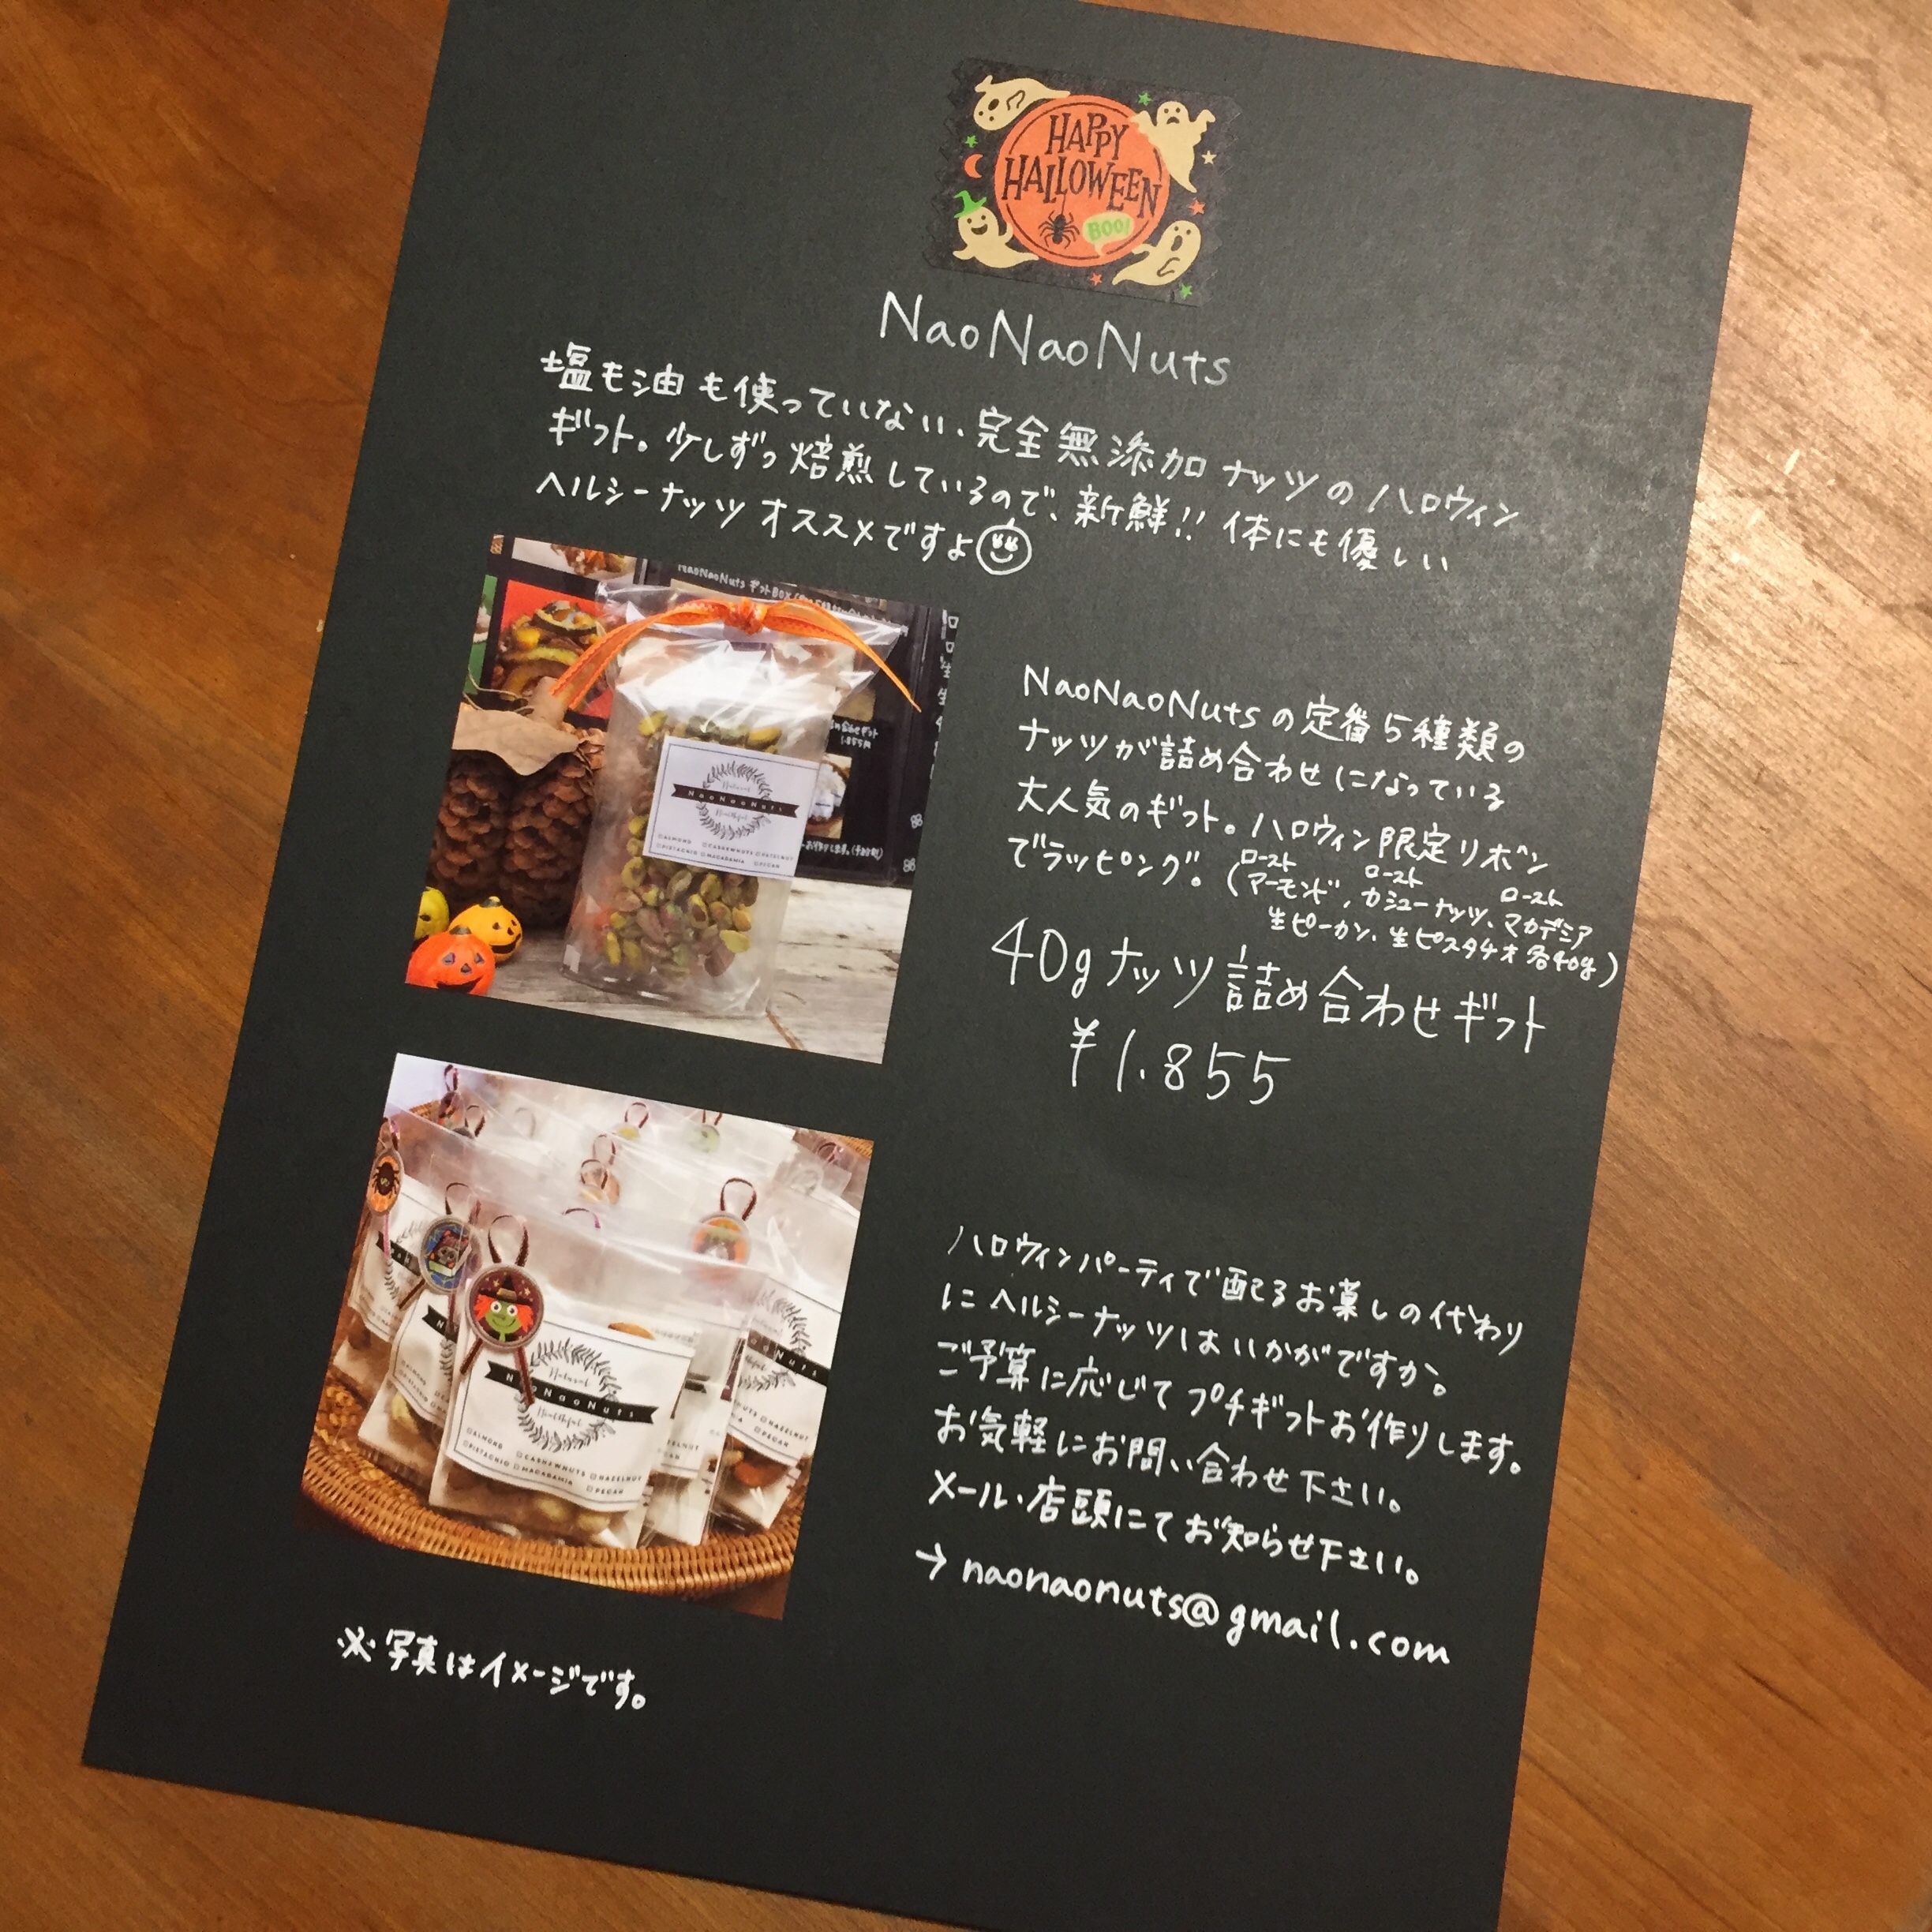 HAPPY
HALLOWEEN
BOO!
NaoNaoNuts
塩も油も使っていない、完全無添加ナッツのハロウィン
ギフト。少しずつ焙煎しているので、新鮮!! 体にも優しい
ヘルシーナッツオススメですよ
NaoNaoNuts ギフトBOX
Natural
NaoNaoNuts
Healthful
ALMOND CASHEWNUTS HAZELNUT
PISTACHIO MACADAMIA PECAN
NaoNaoNutsの定番5種類の
ナッツが詰め合わせになっている
大人気のギフト。ハロウィン限定リボン
でラッピング。(ローストアーモンド、ローストカシューナッツ、ローストマカデミア
生ピーカン、生ピスタチオ各40g)
40gナッツ詰め合わせギフト
¥1.855
Natural
NaoNaoNuts
Healthful
ALMOND CASHEWNUTS HAZELNUT
PISTACHIO MACADAMIA PECAN
ハロウィンパーティで配るお菓しの代わり
にヘルシーナッツはいかがですか。
ご予算に応じてプチギフトお作りします。
お気軽にお問い合わせ下さい。
メール・店頭にてお知らせ下さい。
→ naonaonuts@gmail.com
※写真はイメージです。